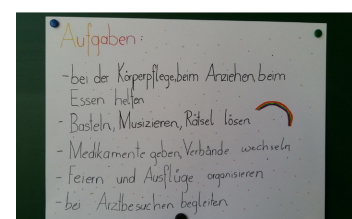 Aufgaben:
-bei der Körperpflege, beim Anziehen, beim
Essen helfen
- Basteln, Musizieren, Rätsel lösen
- Medikamente geben, Verbände wechseln
- Feiern und Ausflüge organisieren
-bei Arztbesuchen begleiten